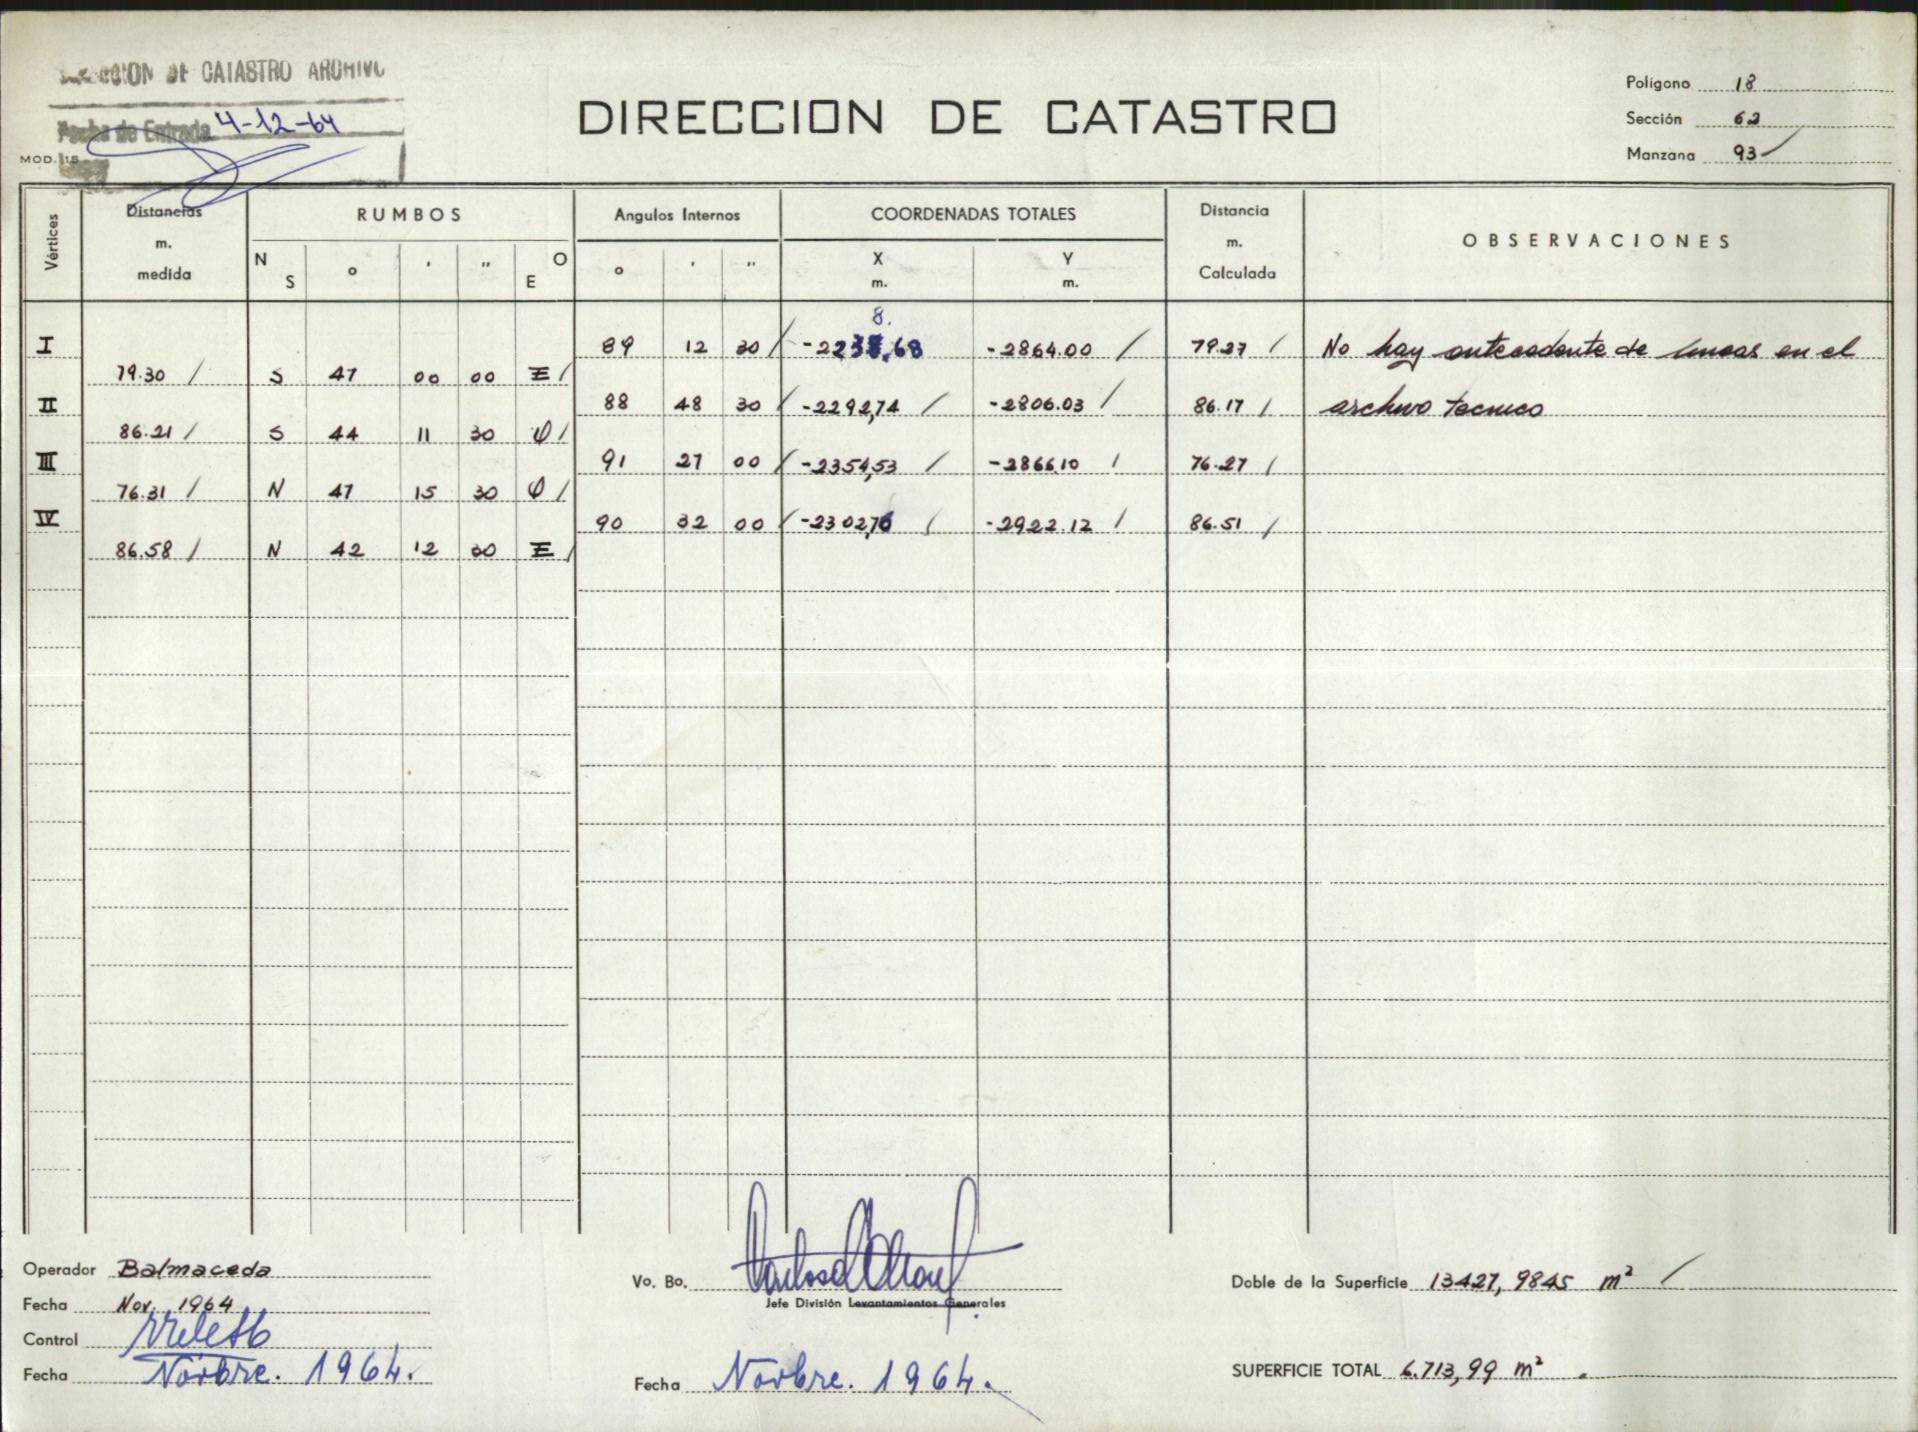 DIRECCION DE CATASTRO ARCHIVO
Fecha de Entrada 4-12-64
MOD. 15
DIRECCION DE CATASTRO
Polígono 18
Sección 62
Manzana 93
Vértices
Distancias m. medida
RUMBOS
N S ° ' " O E
Angulos Internos
° ' "
COORDENADAS TOTALES
X m. Y m.
Distancia m. Calculada
OBSERVACIONES
8.
I 89 12 30 / -2238,68 -2864.00 / 79.27 / No hay antecedente de lineas en el
79.30 / S 47 00 00 E /
II 88 48 30 / -2292,74 / -2806.03 / 86.17 / archivo tecnico
86.21 / S 44 11 30 O /
III 91 27 00 / -2354,53 / -2866.10 / 76.27 /
76.31 / N 47 15 30 O /
IV 90 32 00 / -2302,76 / -2922.12 / 86.51 /
86.58 / N 42 12 30 E /
Operador Balmaceda
Fecha Nov. 1964
Control
Fecha Novbre. 1964.
Vo. Bo.
Jefe División Levantamientos Generales
Fecha Novbre. 1964.
Doble de la Superficie 13427,9845 m² /
SUPERFICIE TOTAL 6.713,99 m² .